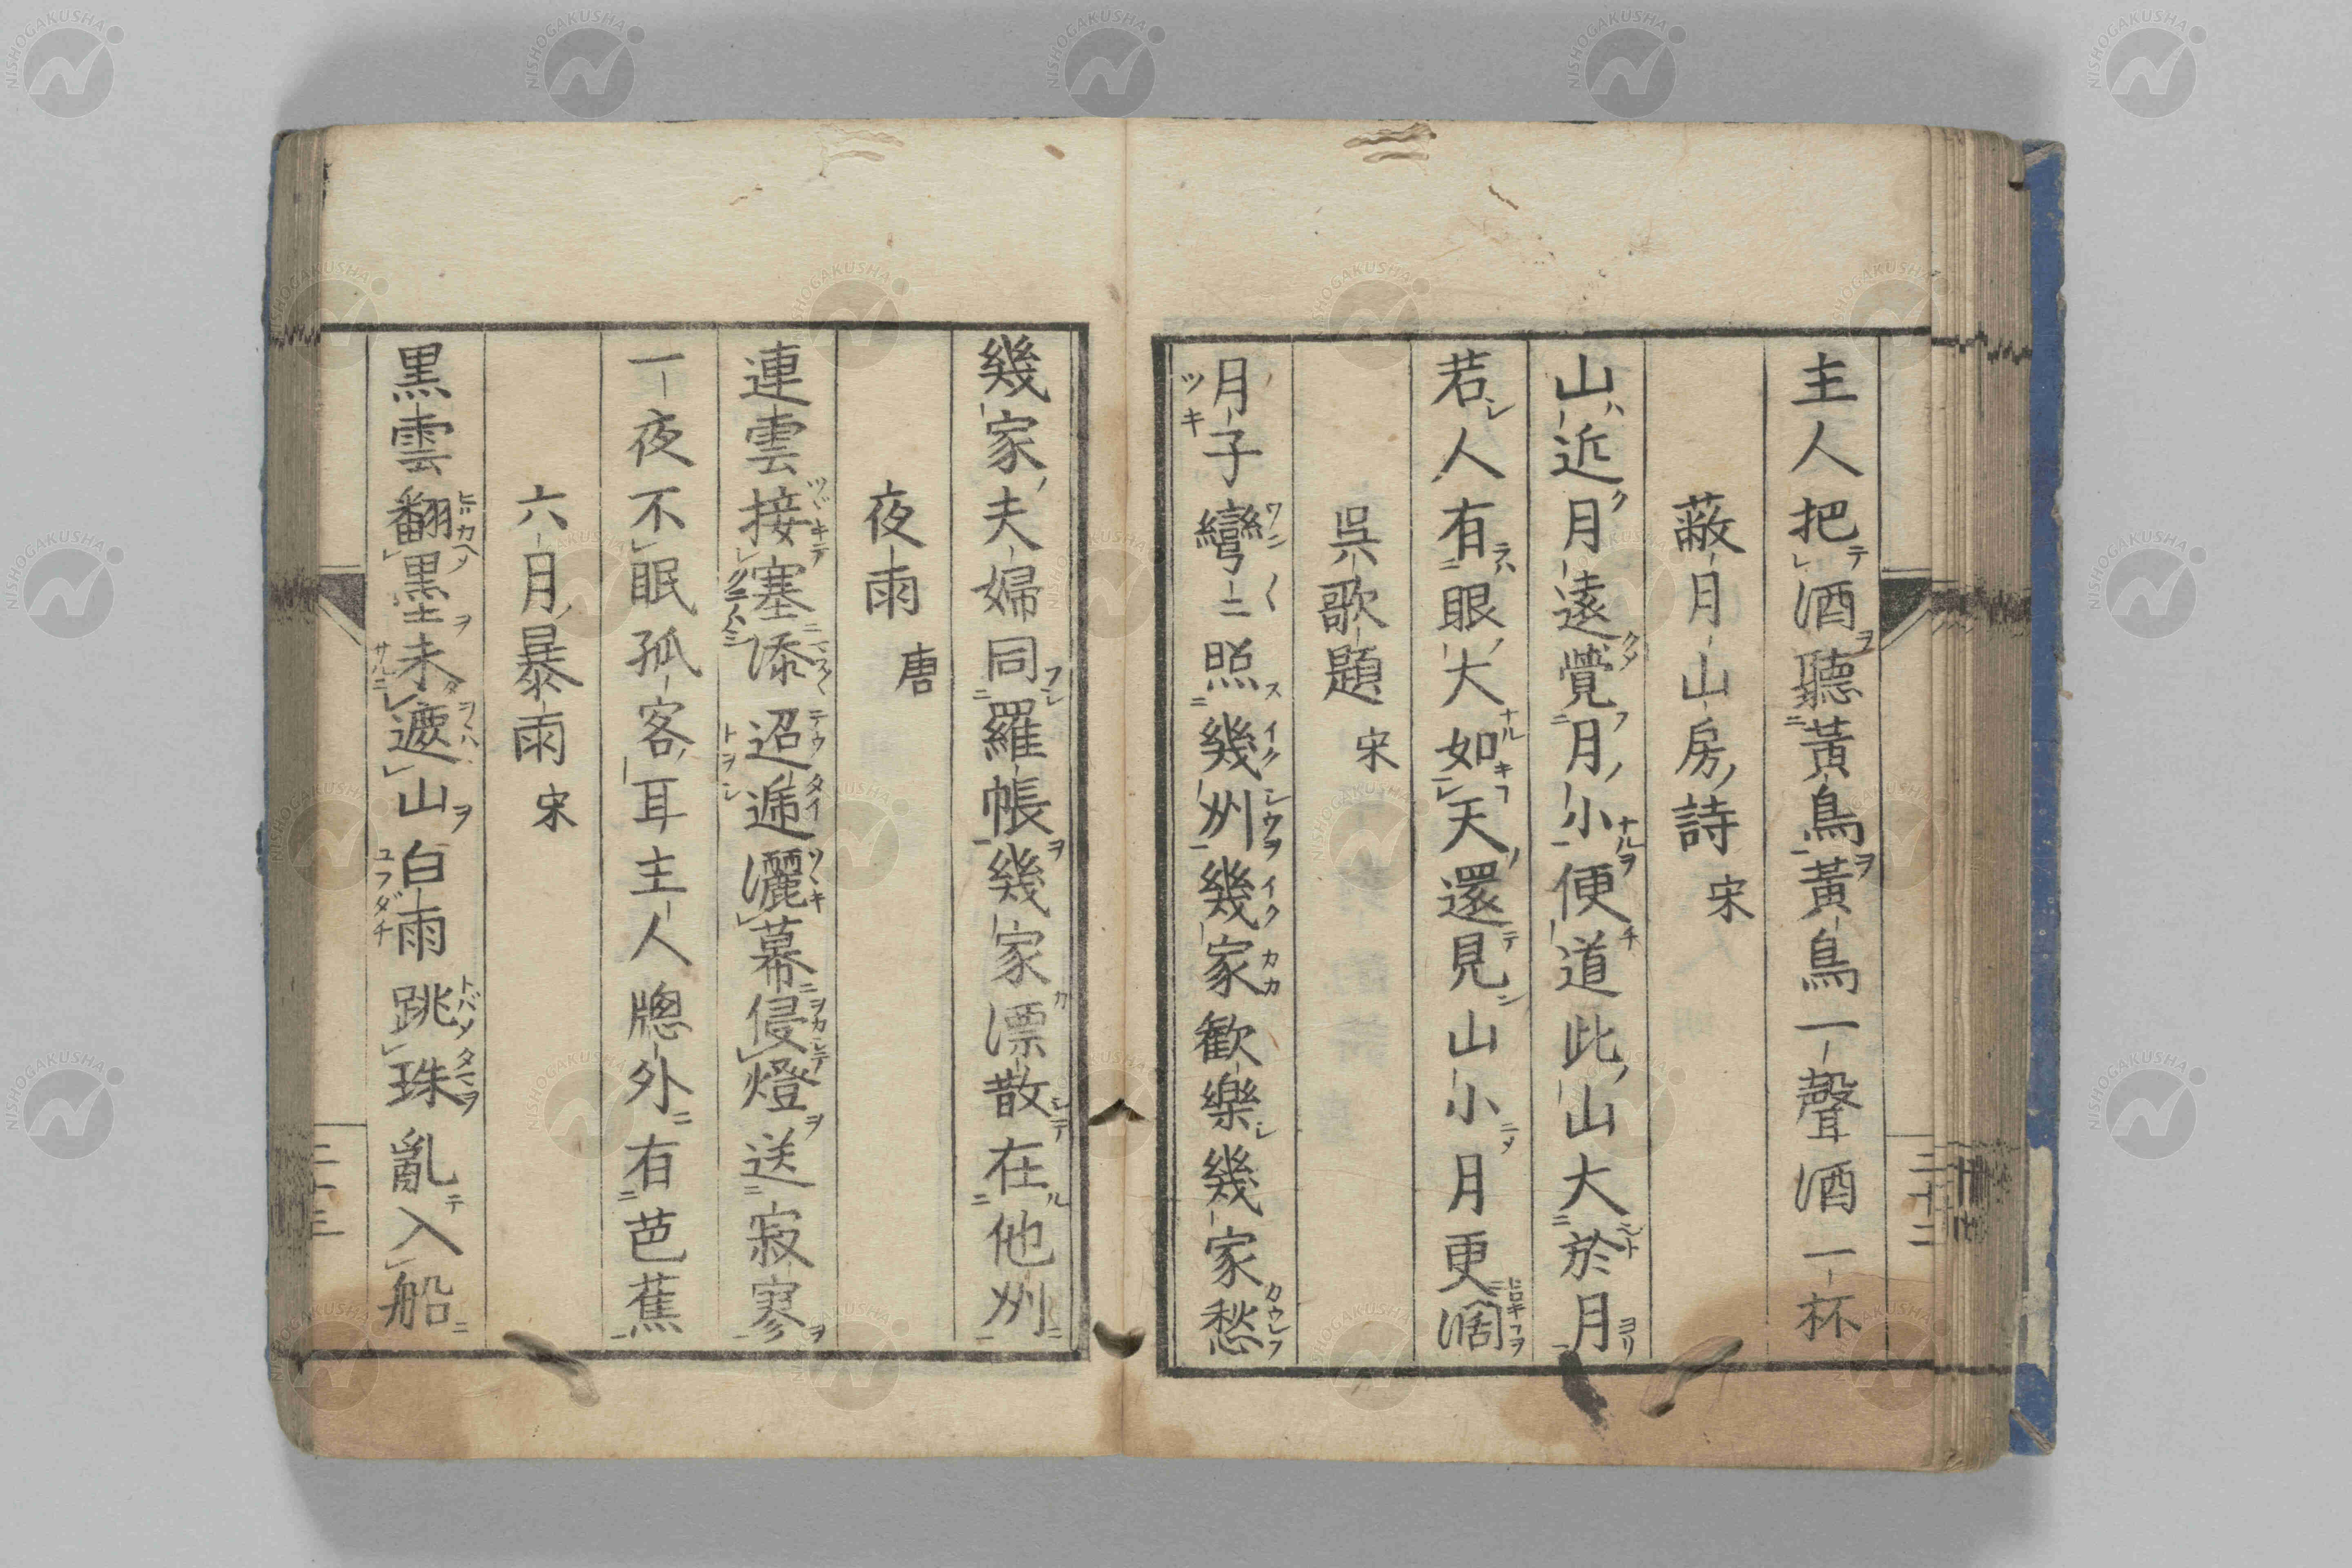 主人把酒聽黃鳥黃鳥一聲酒一杯
蔽月山房詩 宋
山近月遠覺月小便道此山大於月
若人有眼大如天還見山小月更濶
吳歌題 宋
月子彎二照幾州幾家歡樂幾家愁
二十二
幾家夫婦同羅帳幾家漂散在他州
夜雨 唐
連雲接塞添迢遞灑幕侵燈送寂寥
一夜不眠孤客耳主人牕外有芭蕉
六月暴雨 宋
黒雲翻墨未遮山白雨跳珠亂入船
二十三
NISHOGAKUSHA